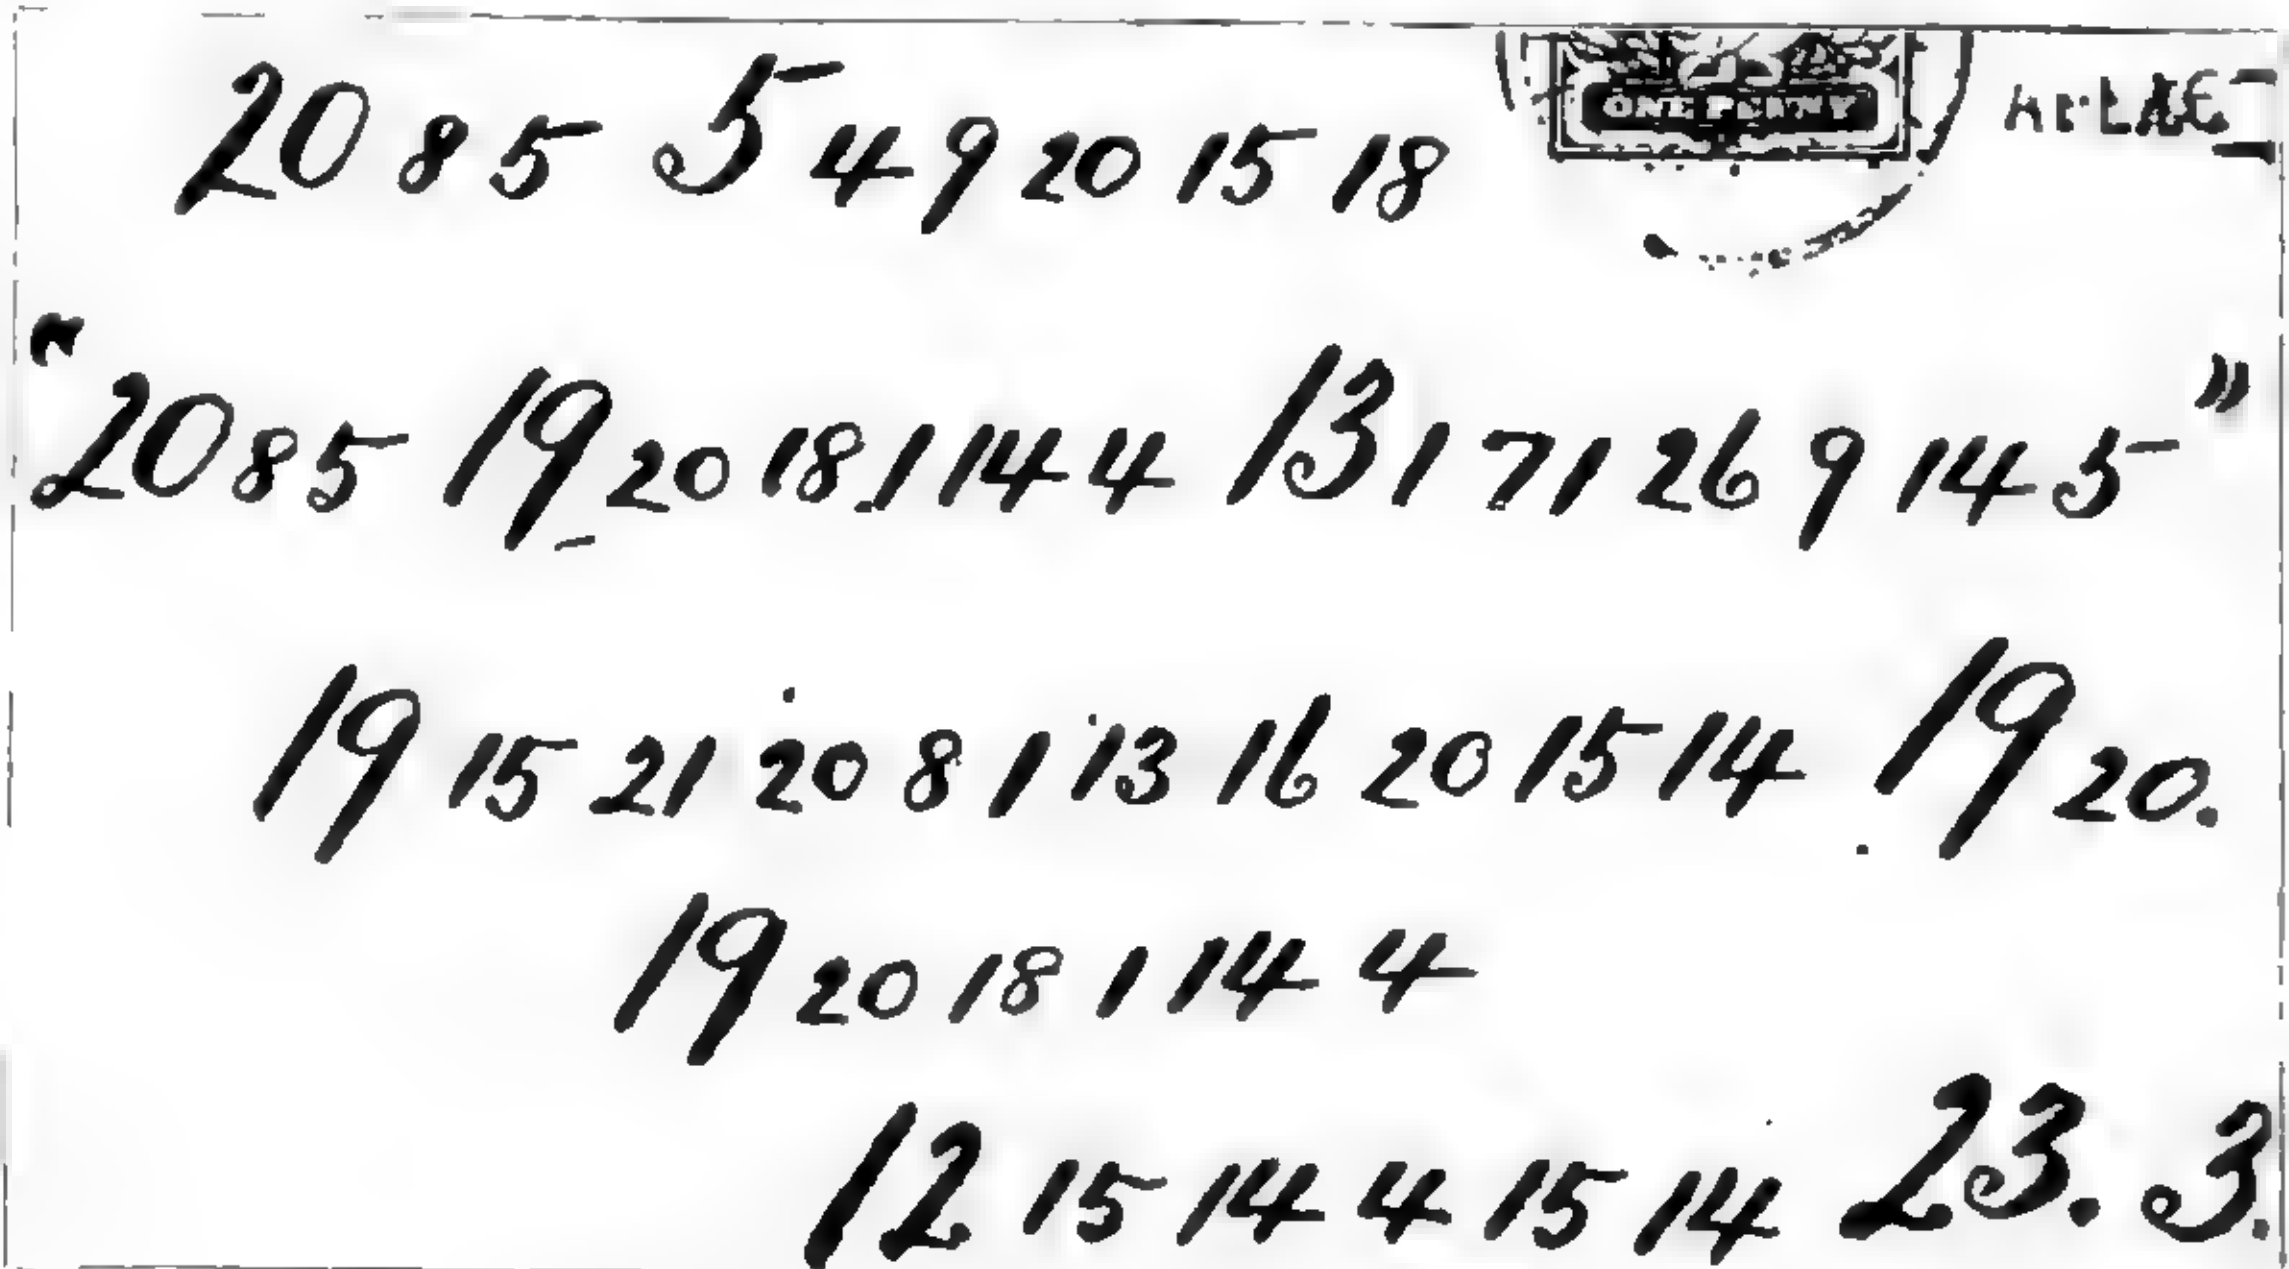 20 8 5 5 4 9 20 15 18
ONE PENNY
"20 8 5 19 20 18 1 14 4 13 1 7 1 26 9 14 5"
19 15 21 20 8 1 13 16 20 15 14 19 20.
19 20 18 1 14 4
12 15 14 4 15 14 23. 3.